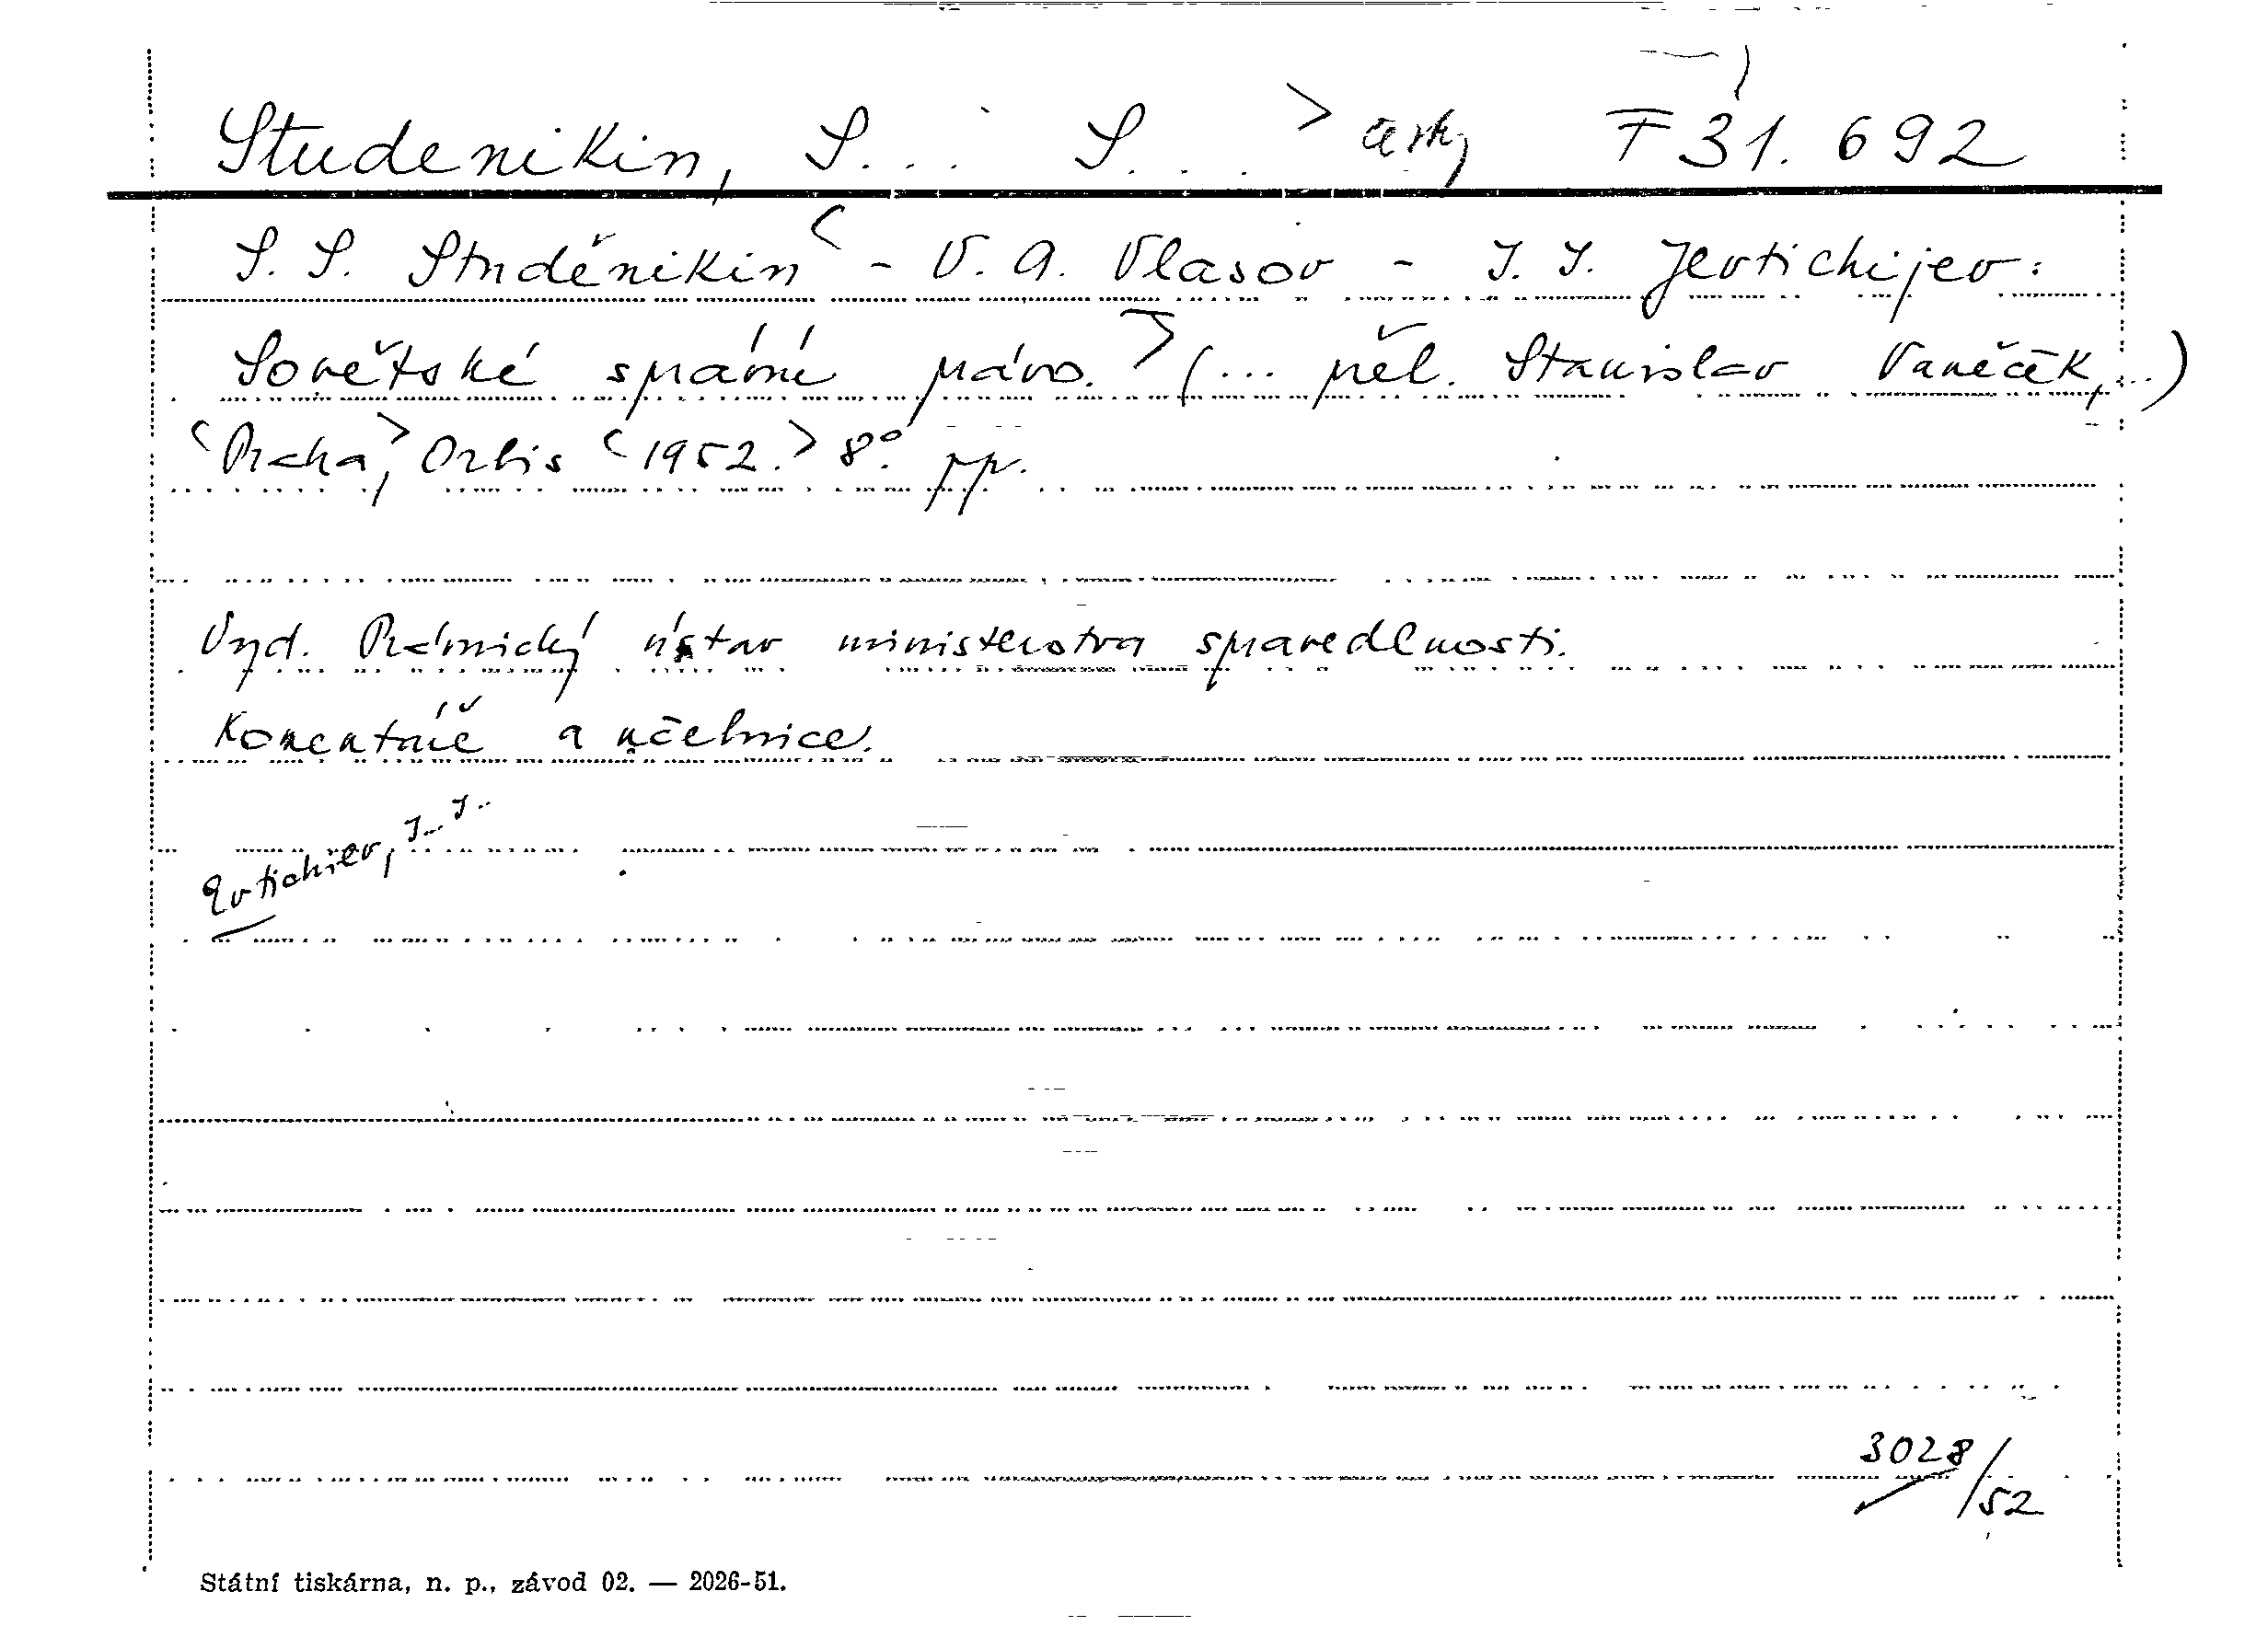 Studenikin, S... S... > česky F 31.692
S. S. Studěnikin < - V. A. Vlasov - I. I. Jevtichijev:
Sovětské správní právo. > (... přel. Stanislav Vaněček, ...)
<Praha,> Orbis <1952.> 8°. pp.
Vyd. Právnický ústav ministerstva spravedlnosti.
Komentáře a učebnice.
Evtichiev, I.. I..
3028/52
Státní tiskárna, n. p., závod 02. — 2026-51.